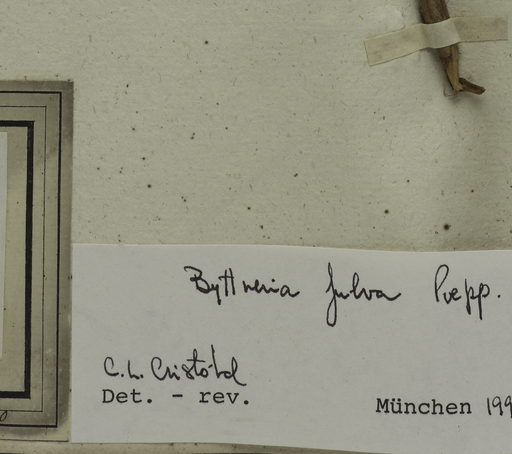 Byttneria fulva Poepp.
C.L. Cristóbal
Det. - rev.
München 199